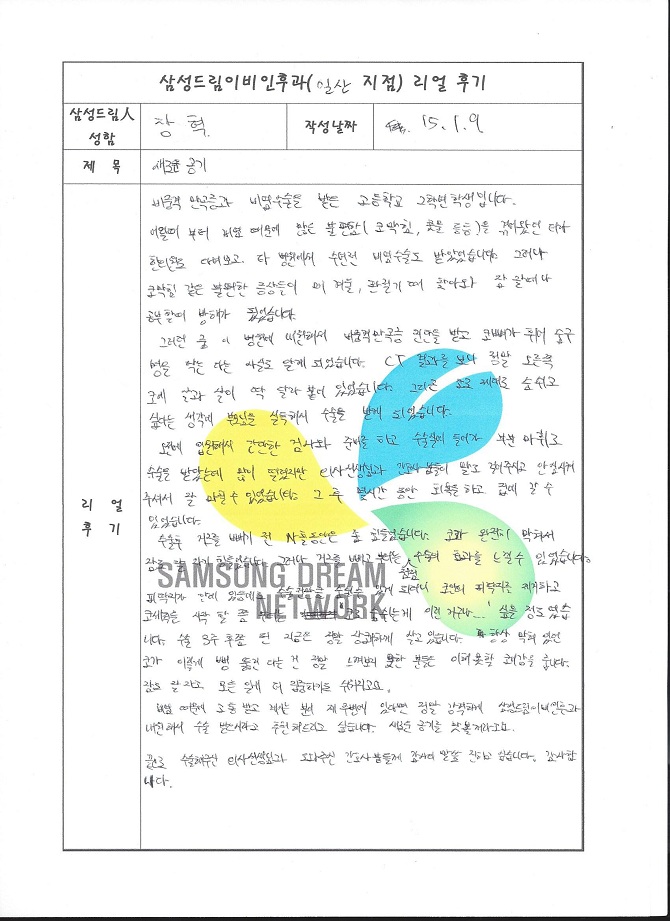 삼성드림이비인후과(일산 지점) 리얼 후기
삼성드림人
성함
장 혁
작성날짜
15. 1. 9
제 목
새로운 공기
비중격 만곡증과 비염수술을 받은 고등학교 2학년 학생입니다.
어릴때 부터 비염 때문에 많은 불편함(코막힘, 콧물 등등)을 겪어왔던 터라
한의원도 다녀보고. 타 병원에서 수면전 비염수술도 받았었습니다. 그러나
코막힘 같은 불편한 증상들이 매 겨울, 환절기 때 찾아와 잠 잘때나
공부할때 방해가 되었습니다.
그러던 중 이 병원에 내원해서 비중격만곡증 진단을 받고 코뼈가 휘어 숨구
멍을 막는 다는 사실도 알게 되었습니다. CT 결과를 보니 정말 오른쪽
코에 살과 살이 딱 달라 붙어 있었습니다. 그리곤 코로 제대로 숨쉬고
싶다는 생각에 부모님을 설득해서 수술을 받게 되었습니다.
오전에 입원해서 간단한 검사와 준비를 하고 수술실에 들어가 부분 마취로
수술을 받았는데 많이 떨렸지만 의사선생님과 간호사 분들이 말도 걸어주시고 안심시켜
주셔서 잘 마칠 수 있었습니다. 그 후 몇시간 동안 회복을 하고 집에 갈 수
있었습니다.
수술후 거즈를 빼기 전 사흘동안은 좀 힘들었습니다. 코가 완전히 막혀서
잠을 잘 자기 힘들었습니다. 그러나 거즈를 빼고 수술의 효과를 느낄 수 있었습니다.
피딱지가 코에 있음에도
코세척을 시작 할 쯤 숨쉬는게 이런 거구나...' 싶을 정도였습
니다. 수술 3주 후쯤 된 지금은 정말 상쾌하게 살고 있습니다. 항상 막혀 있던
코가 이렇게 뻥 뚫린 다는 건 정말 느껴보지 못한 분들은 이해 못할 쾌감을 줍니다.
잠도 잘 자고 모든 일에 더 집중하기도 수월하고요.
비염 때문에 고통 받고 계시는 분이 제 주변에 있다면 정말 강력하게 삼성드림이비인후과
내원해서 수술 받으시라고 추천해드리고 싶습니다. 새로운 공기를 맛볼거라고요.
끝으로 수술해주신 의사선생님과 도와주신 간호사분들께 감사의 말씀 전하고 싶습니다. 감사합
니다.
리 얼
후 기
SAMSUNG DREAM
NETWORK